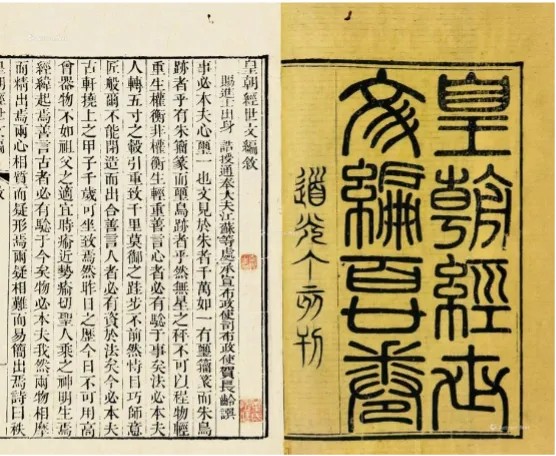 皇朝經世
文編百廿卷
道光丁亥刊
皇朝經世文編敘
賜進士出身 誥授通奉大夫江蘇等處承宣布政使司布政使賀長齡譔
事必本夫心璽一也文見於朱者千萬如一有璽籀篆而朱鳥
跡者乎有朱籀篆而璽鳥跡者乎然無星之秤不可以程物輕
重生權衡非權衡生輕重善言心者必有驗于事矣法必本夫
人轉五寸之轂引重致千里莫御之跬步不前然恃目巧師意
匠般爾不能閉造而出合善言人者必有資於法矣今必本夫
古軒撓上之甲子千歲可坐致焉然昨日之歷今日不可用高
曾器物不如祖父之適宜時愈近勢愈切聖人乘之神明生焉
經緯起焉善言古者必有驗于今矣物必本夫我然兩物相摩
而精出焉兩心相質而疑形焉兩疑相難而易簡出焉詩曰秩
皇朝經世文編 敘